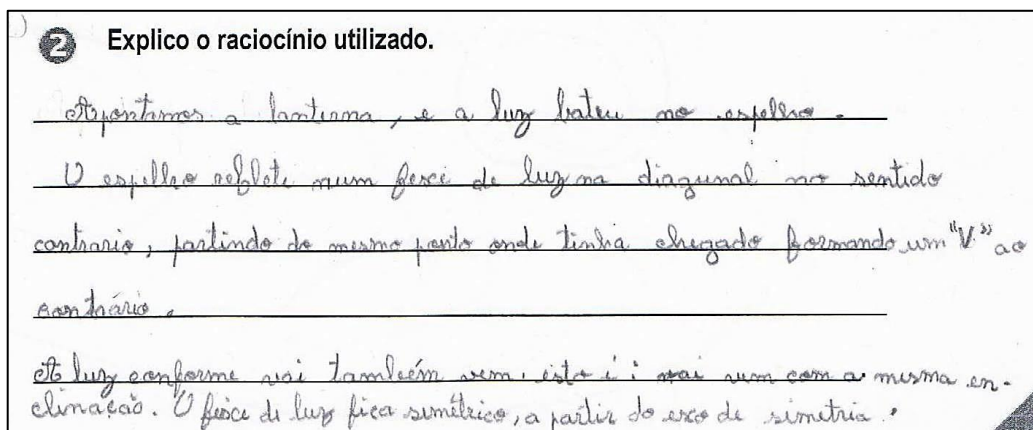 2 Explico o raciocínio utilizado.
Apontamos a lanterna, e a luz bateu no espelho.
O espelho reflete num feixe de luz na diagunal no sentido
contrario, partindo do mesmo ponto onde tinha chegado formando um "V" ao
contrário.
A luz conforme vai também vem, isto é: vai com a mesma en-
clinação. O feixe de luz fica simétrico, a partir do eixo de simetria.